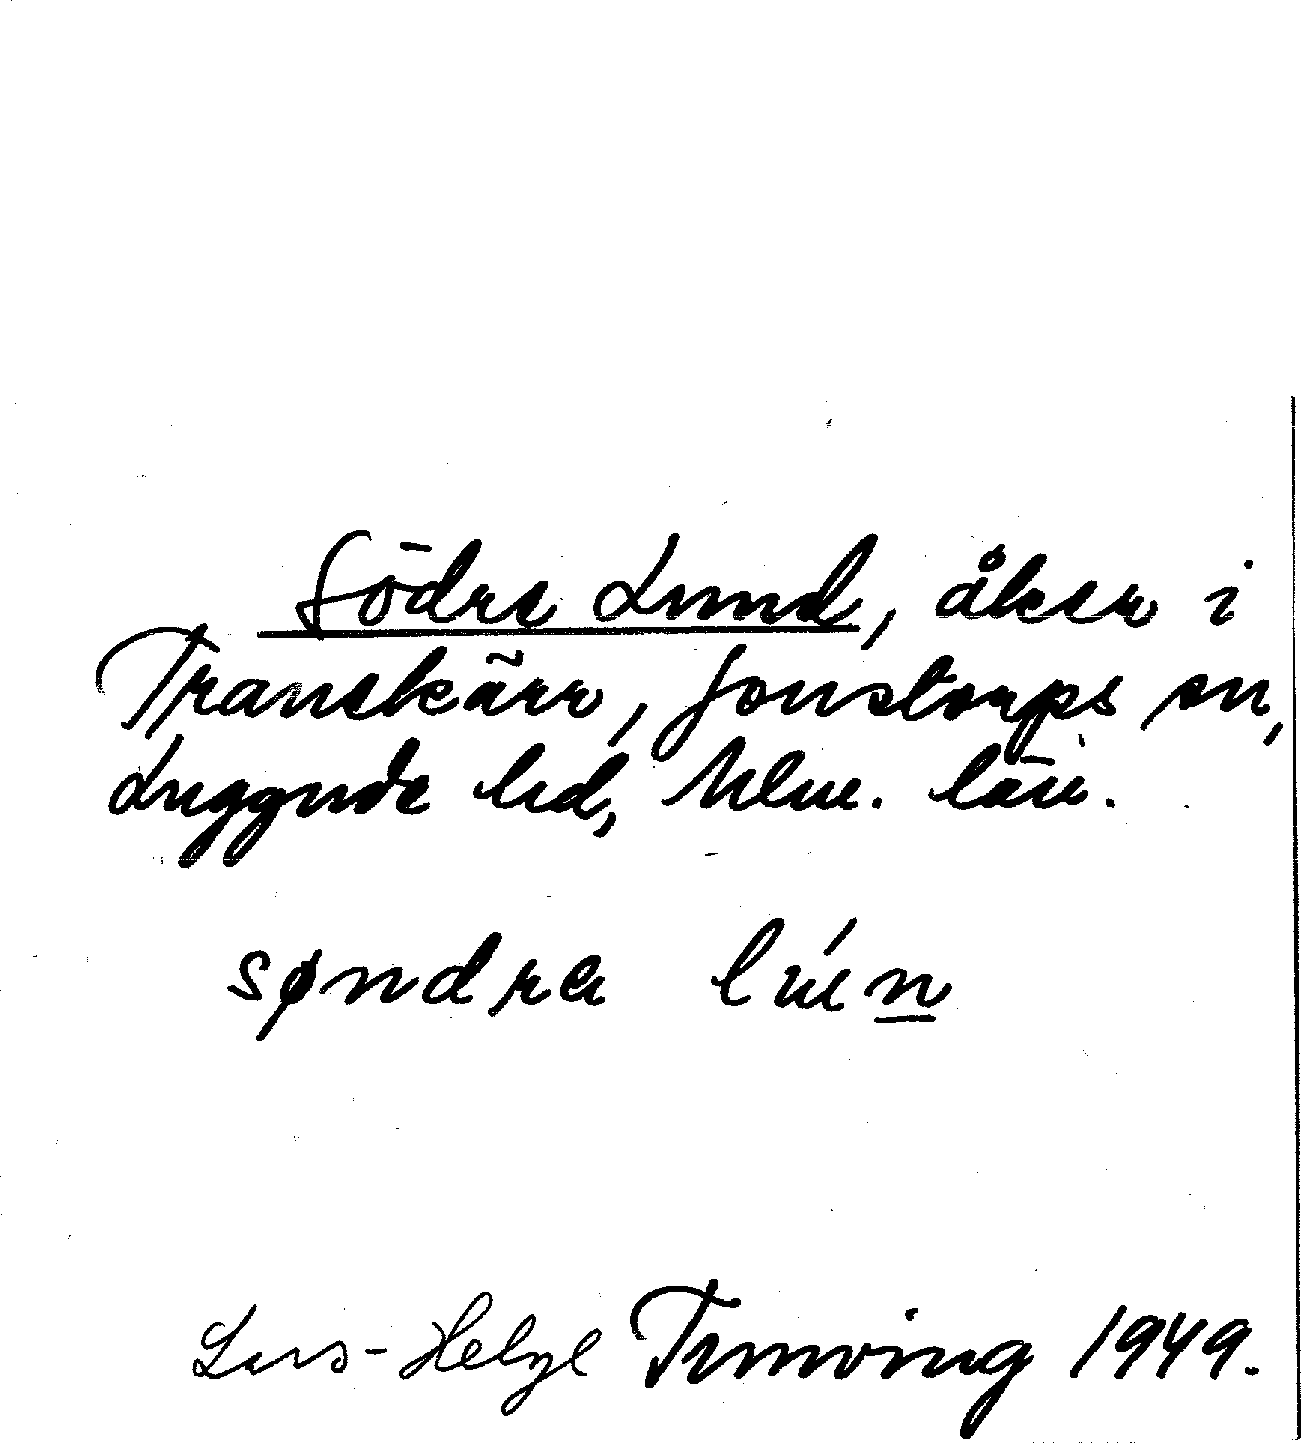 Södra Lund, åker i
Tranekärr, Jonstorps sn,
Luggude hd, Mlm. län.
søndra lúen
Lars-Helge Tunving 1949.